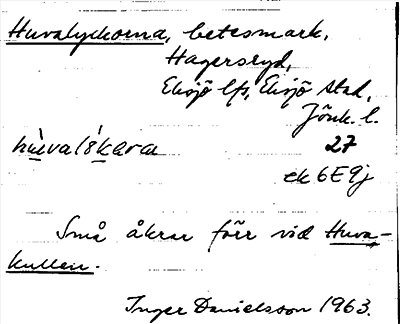 Huvalyckorna, betesmark,
Hagersryd,
Eksjö lfs, Eksjö stad,
Jönk. l.
27
ek 6E9j
Små åkrar förr vid Huva-
kullen.
Inger Danielsson 1963.